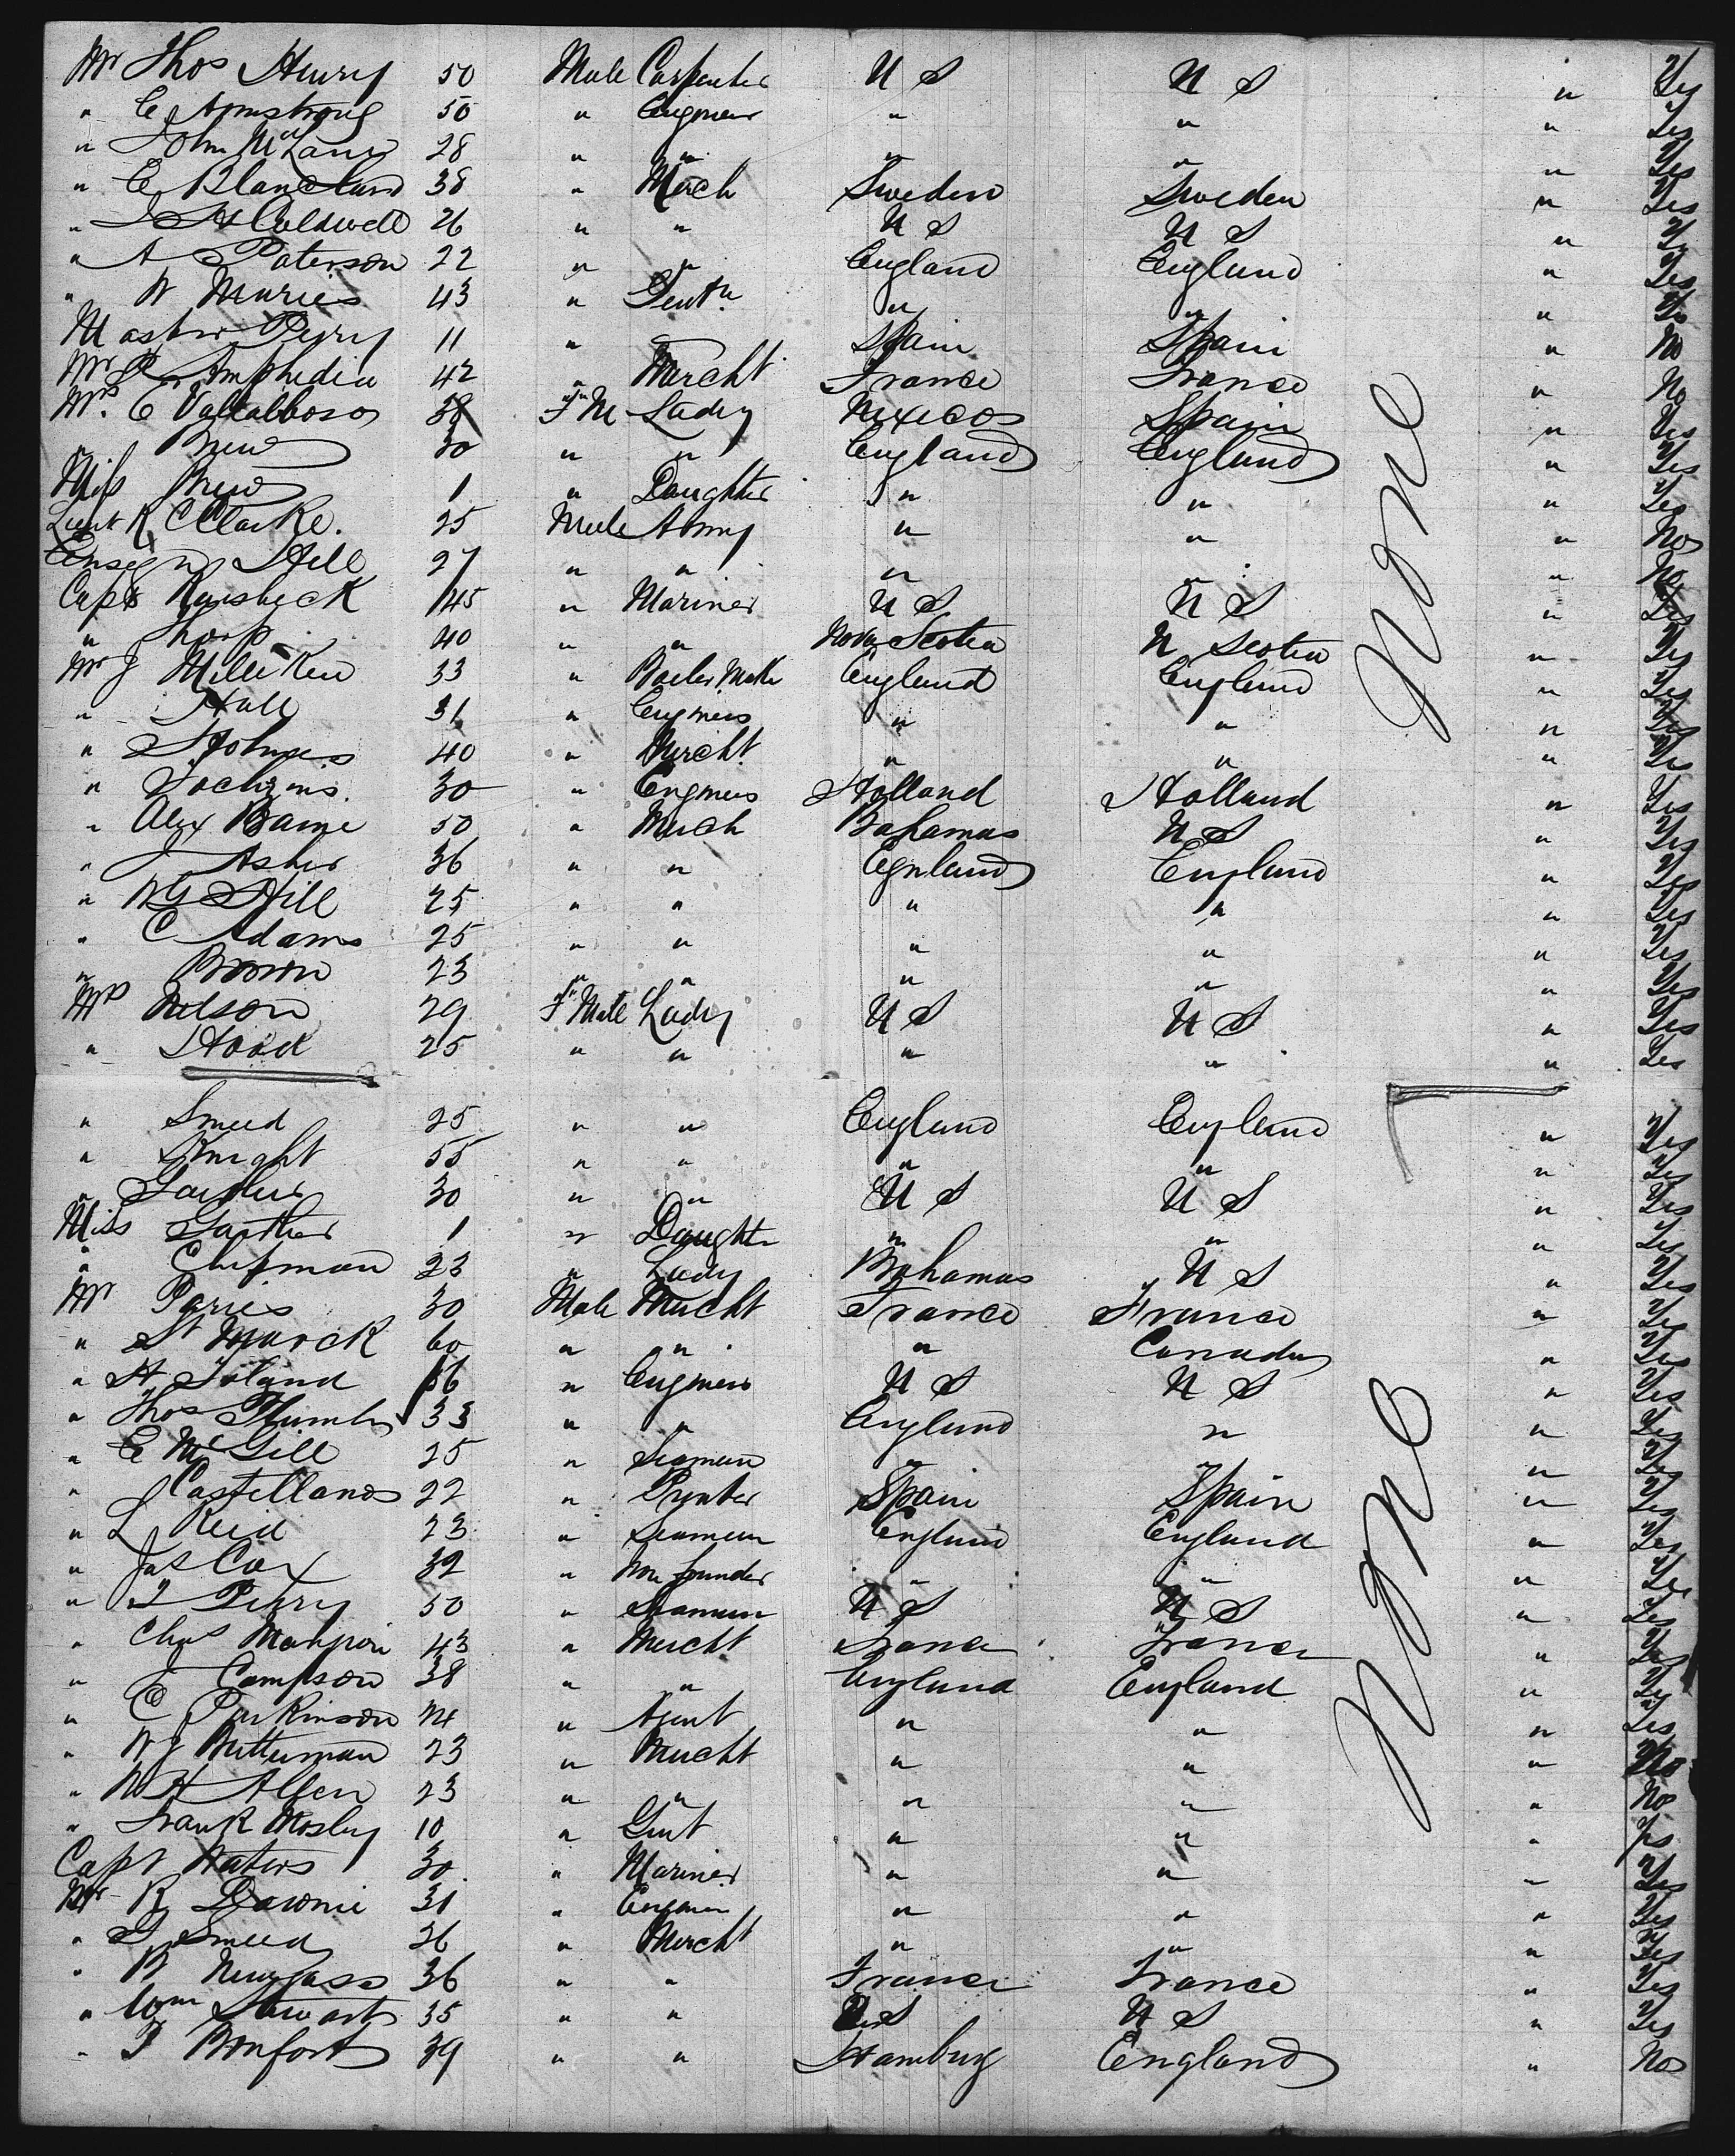 Mr Thos Henry 50 Male Carpenter U S U S " Yes
" C Armstrong 50 " Engineer " " " Yes
" John McLane 28 " " " " " Yes
" C Blanchard 38 " Merch Sweden Sweden " Yes
" J H Caldwell 26 " " U S U S " Yes
" A Paterson 22 " " England England " Yes
" W Muries 43 " Gent " " " " Yes
Master Perry 11 " Spain Spain " No
Mr Amphedia 42 " Mercht France France " No
Mrs. C Valtalboso 38 F"M Lady Mexico Spain " Yes
" Brew 30 " " England England " Yes
Miss Brew 1 " Daughter " " " Yes
Lieut R C Clarke. 25 Male Army " " " No
Ensegn Hill 27 " " " " " No
Capt 45 " Mariner U S U S " Yes
" Thorp 40 " " Nova Scotia N Scotia " Yes
Mr J Milliken 33 " Boiler Make England England " Yes
" Hall 31 " Engineer " " " Yes
" Holmes 40 " Mercht. " " " Yes
" 30 " Engineer Holland Holland " Yes
" Alex Bame 50 " Merch Bahamas U S " Yes
" J Asher 36 " " Egnland England " Yes
" W G Hill 25 " " " " " Yes
" C Adams 25 " " " " " Yes
" Brown 23 " " " " " Yes
Mrs Nelson 29 F"Male Lady U S U S " Yes
" Hood 25 " " " " " Yes
None
" Smeed 25 " " England England " Yes
" Knight 55 " " " " " Yes
" Gaither 30 " " U S U S " Yes
Miss Gaither 1 " Daughter " " " Yes
" Chipman 23 " Lady Bahamas U S " Yes
Mr Paries 30 Male Mercht France France " Yes
" St Marck 60 " " " Canada " Yes
" H Toland 36 " Engineer U S U S " Yes
" Thos Plumb 33 " " England " " Yes
" C McGill 25 " Seaman " " " Yes
" Castellanos 22 " Prynter Spain Spain " Yes
" L Reid 23 " Seaman England England " Yes
" Jas Cox 32 " Iron founder " " " Yes
" T Perry 50 " Seaman U S U S " Yes
" Chas 43 " Mercht France France " Yes
" J Campson 38 " " England England " Yes
" C Parkinson 24 " Agent " " " Yes
" W J Bitterman 23 " Mercht " " " No
" W H Allen 23 " " " " " No
" Frank Mosley 10 " Gent " " " Yes
Capt Waters 30 " Mariner " " " Yes
Mr R Downie 31 " Engineer " " " Yes
" G Smeed 36 " Mercht " " " Yes
" B Newgass 36 " " France France " Yes
" Wm Stewart 35 " " U S U S " Yes
" J Bonfort 39 " " Hamburg England " No
None